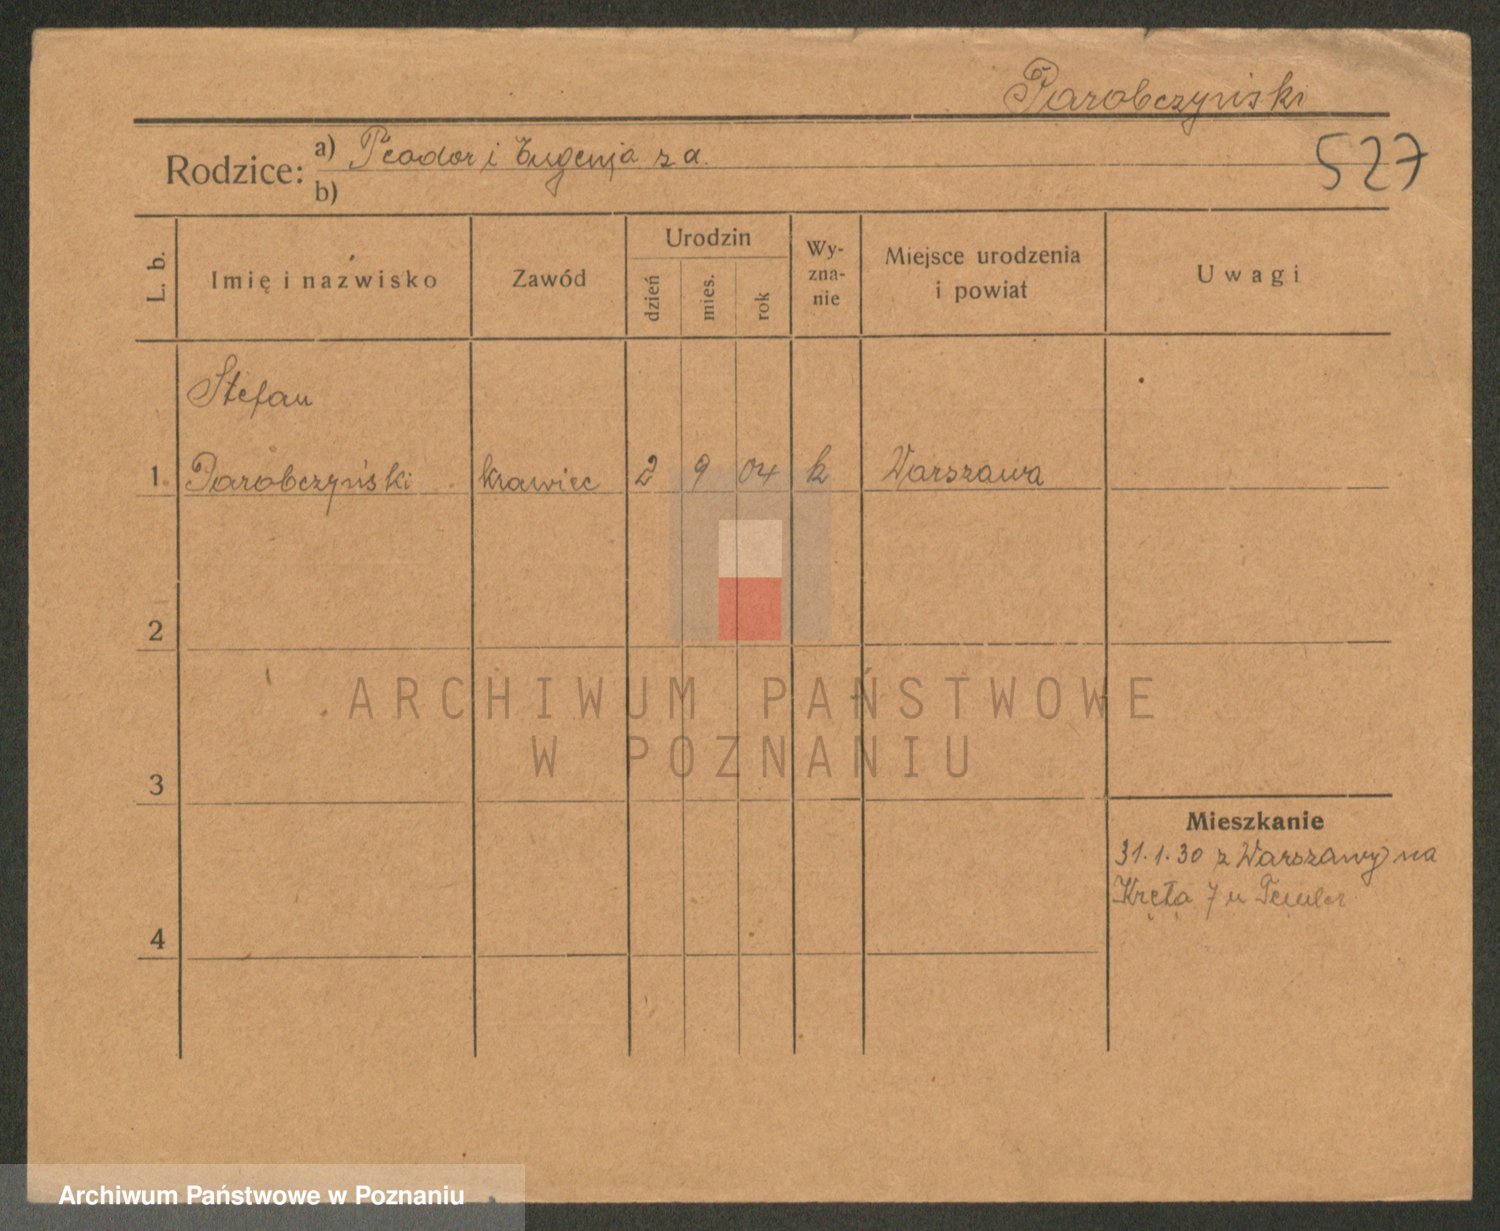 Parobczyński
527
Rodzice: a) Teodor i Eugenja z d.
b)
L. b.
Imię i nazwisko
Zawód
Urodzin
dzień
mies.
rok
Wy-
zna-
nie
Miejsce urodzenia
i powiat
Uwagi
Stefan
1. Parobczyński krawiec 2 9 04 k Warszawa
2
3
4
Mieszkanie
31.1.30 z Warszawy na
Kręta 7 u
ARCHIWUM PAŃSTWOWE
W POZNANIU
Archiwum Państwowe w Poznaniu